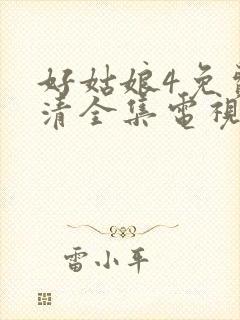 好姑娘4免
清全集電視
雷小平